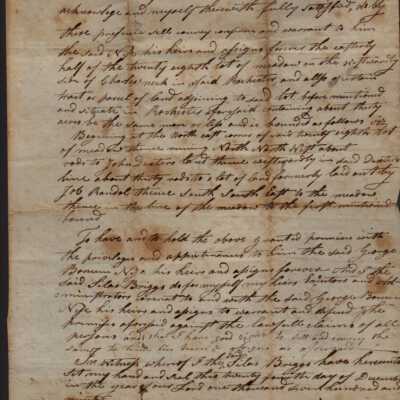 acknowledge and myself therewith fully satisfied, do by
these presents sell convey confirm and warrant to him
the said N.Ye his heirs and assigns forever the easterly
half of the twenty eighth lot of meadow on the westwardly
side of Charles neck in said Rochester, and also a certain
tract or parcel of land adjoining to said lot before mentioned
and situate in Rochester aforesaid containing about thirty
acres be the same more or less and is bounded as follows Viz
Begining at the North east corner of said twenty eighth lot
of meadow thence runing North North West about
rods to John land thence westwardly in said
line about thirty rods to a lot of land formerly laid out by
Job Randal thence South South East to the meadow
thence in the line of the meadow to the first mentioned
bound
To have and to hold the above granted premises with
the privileges and appurtenances to him the said George
Bonum Nye his heirs and assigns forever And I the
said Silas Briggs do for myself my heirs executors and ad-
ministrators covenant to and with the said George Bonum
Nye his heirs and assigns to warrant and defend the
premises aforesaid against the lawfull claims of all
persons and that I have good right to sell and convey the
same to him
In witness whereof I the said Silas Briggs have hereunto
set my hand and seal this twenty fourth day of December
in the year of our Lord one thousand seven hundred and